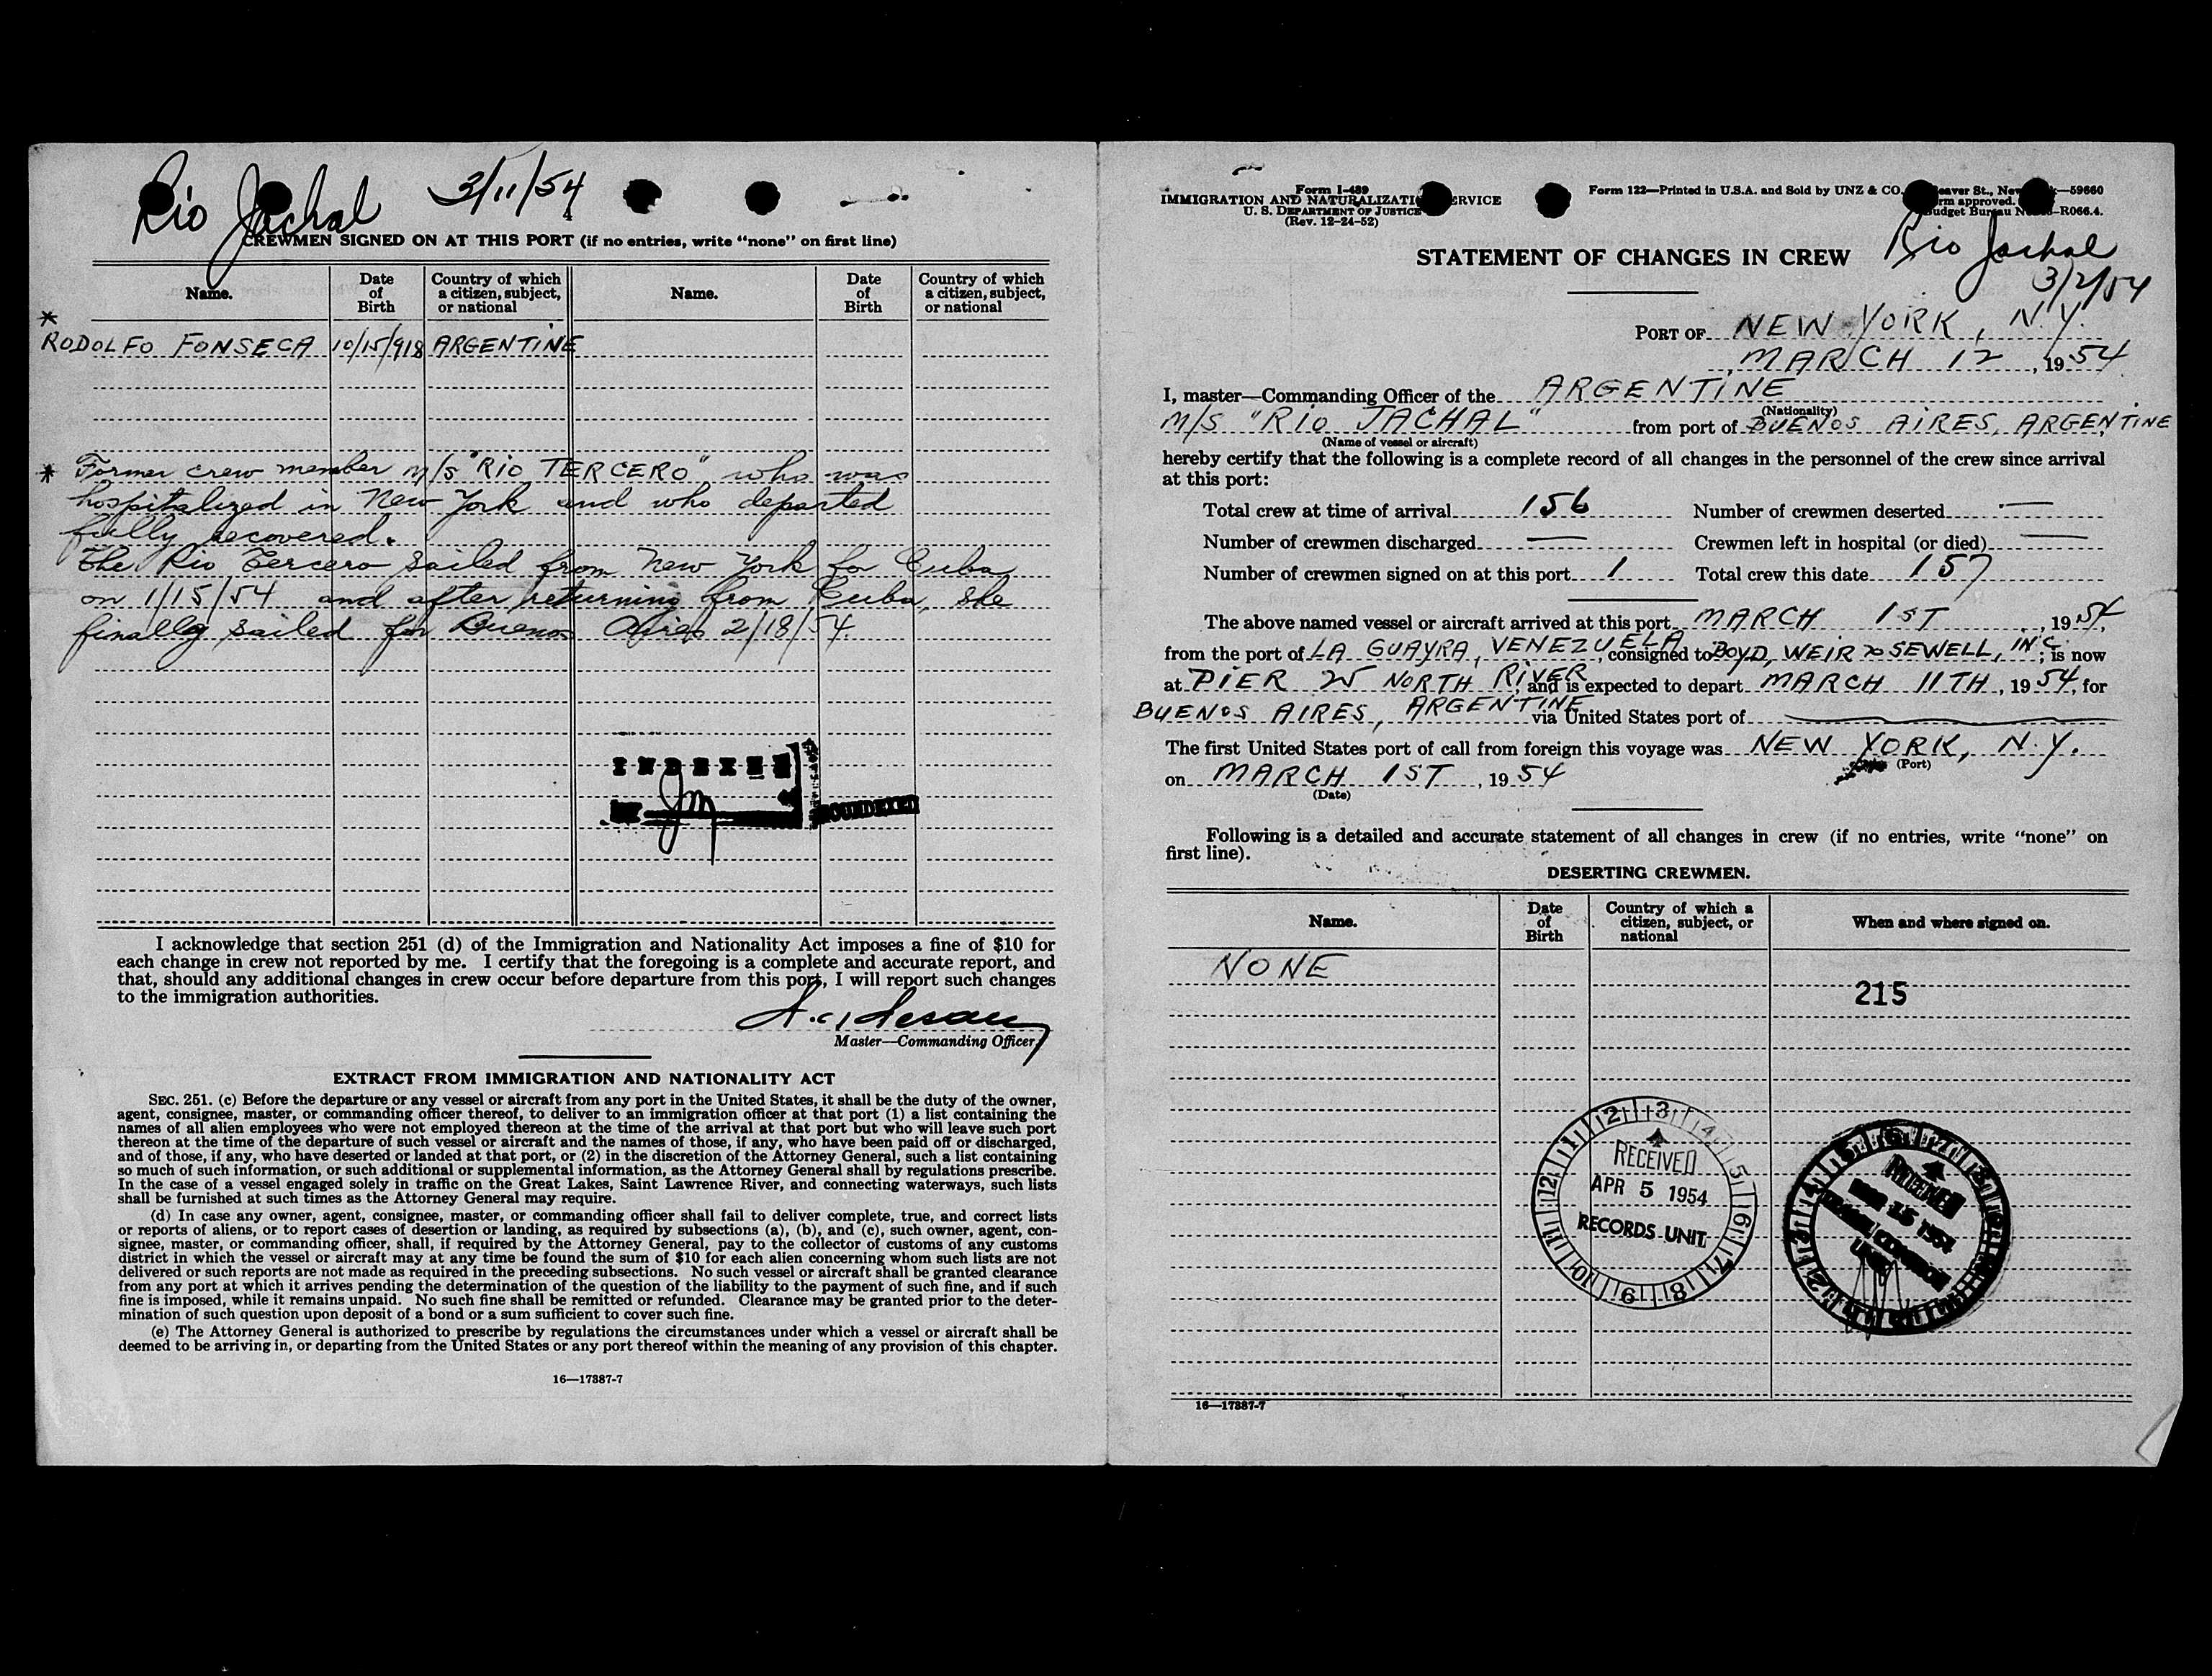 Rio Jachal 3/11/54
CREWMEN SIGNED ON AT THIS PORT (if no entries, write "none" on first line)
Name. Date of Birth Country of which a citizen, subject, or national Name. Date of Birth Country of which a citizen, subject, or national
*
RODOLFO FONSECA 10/15/918 ARGENTINE
* Former crew member m/s "RIO TERCERO" who was
hospitalized in New York and who departed
fully recovered.
The Rio Tercero sailed from New York for Cuba
on 1/15/54 and after returning from Cuba, she
finally sailed for Buenos Aires 2/18/54.
INDEXED
I acknowledge that section 251 (d) of the Immigration and Nationality Act imposes a fine of $10 for
each change in crew not reported by me. I certify that the foregoing is a complete and accurate report, and
that, should any additional changes in crew occur before departure from this port, I will report such changes
to the immigration authorities.
Master—Commanding Officer.
EXTRACT FROM IMMIGRATION AND NATIONALITY ACT
SEC. 251. (c) Before the departure or any vessel or aircraft from any port in the United States, it shall be the duty of the owner,
agent, consignee, master, or commanding officer thereof, to deliver to an immigration officer at that port (1) a list containing the
names of all alien employees who were not employed thereon at the time of the arrival at that port but who will leave such port
thereon at the time of the departure of such vessel or aircraft and the names of those, if any, who have been paid off or discharged,
and of those, if any, who have deserted or landed at that port, or (2) in the discretion of the Attorney General, such a list containing
so much of such information, or such additional or supplemental information, as the Attorney General shall by regulations prescribe.
In the case of a vessel engaged solely in traffic on the Great Lakes, Saint Lawrence River, and connecting waterways, such lists
shall be furnished at such times as the Attorney General may require.
(d) In case any owner, agent, consignee, master, or commanding officer shall fail to deliver complete, true, and correct lists
or reports of aliens, or to report cases of desertion or landing, as required by subsections (a), (b), and (c), such owner, agent, con-
signee, master, or commanding officer, shall, if required by the Attorney General, pay to the collector of customs of any customs
district in which the vessel or aircraft may at any time be found the sum of $10 for each alien concerning whom such lists are not
delivered or such reports are not made as required in the preceding subsections. No such vessel or aircraft shall be granted clearance
from any port at which it arrives pending the determination of the question of the liability to the payment of such fine, and if such
fine is imposed, while it remains unpaid. No such fine shall be remitted or refunded. Clearance may be granted prior to the deter-
mination of such question upon deposit of a bond or a sum sufficient to cover such fine.
(e) The Attorney General is authorized to prescribe by regulations the circumstances under which a vessel or aircraft shall be
deemed to be arriving in, or departing from the United States or any port thereof within the meaning of any provision of this chapter.
16—17887-7
Form I-489
IMMIGRATION AND NATURALIZATI RVICE
U. S. DEPARTMENT OF JUSTICE
(Rev. 12-24-52)
Form 122—Printed in U.S.A. and Sold by UNZ & CO. eaver St., New —59660
rm approved.
udget Bureau N —R066.4.
STATEMENT OF CHANGES IN CREW
Rio Jachal
3/2/54
PORT OF NEW YORK, N.Y.
MARCH 12, 1954
I, master—Commanding Officer of the ARGENTINE
(Nationality)
M/S "RIO JACHAL" from port of BUENOS AIRES, ARGENTINE
(Name of vessel or aircraft)
hereby certify that the following is a complete record of all changes in the personnel of the crew since arrival
at this port:
Total crew at time of arrival 156 Number of crewmen deserted —
Number of crewmen discharged — Crewmen left in hospital (or died) —
Number of crewmen signed on at this port 1 Total crew this date 157
The above named vessel or aircraft arrived at this port MARCH 1ST, 1954,
from the port of LA GUAYRA, VENEZUELA, consigned to BOYD, WEIR & SEWELL, INC; is now
at PIER 25 NORTH RIVER, and is expected to depart MARCH 11TH, 1954, for
BUENOS AIRES, ARGENTINE via United States port of
The first United States port of call from foreign this voyage was NEW YORK, N.Y.
(Port)
on MARCH 1ST, 1954
(Date)
Following is a detailed and accurate statement of all changes in crew (if no entries, write "none" on
first line).
DESERTING CREWMEN.
Name. Date of Birth Country of which a citizen, subject, or national When and where signed on.
NONE
215
RECEIVED
APR 5 1954
RECORDS UNIT
RECEIVED
MAR 15 1954
16—17887-7